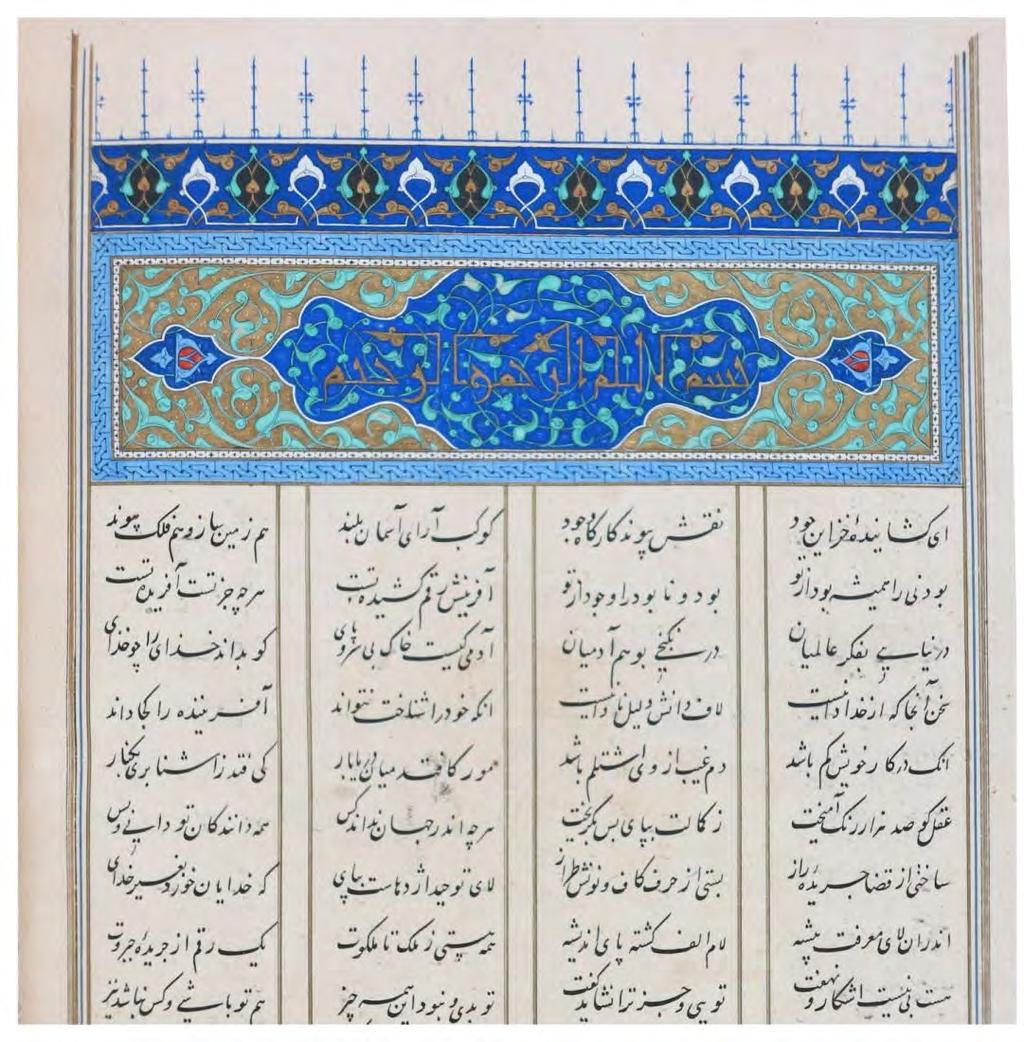 بسم الله الرحمن الرحیم
ای کشایندهٔ خزاین جود نقش پیوند کارکاه وجود کوکب آرای آسمان بلند هم زمین ساز و هم فلک پیوند
بودنی را همیشه بود از تو بود و نابود را وجود از تو آفرینش رقم کشیده تست هرچه جز تست آفریده تست
در نیایی بفکر عالمیان در نکنجی بوهم آدمیان آدمی کیست خاک بی سر و پای کو بداند خدای را چو خدای
سخن آنجا که از خدا دانیست لاف دانش دلیل نادانیست انکه خود را شناخت نتواند آفریننده را کجا داند
انک در کار خویش کم باشد دم غیب از وی اشتلم باشد مور کافتد میان دریابار کی فتد ز اشنابری بکنار
عقل کو صد هزار رنک آمیخت ز کمالت بپای پس بکریخت هرچه اندر جهان نداند کس همه دانندکان تو دانی و بس
ساختی از قضا جریدهٔ راز بستی از حرف کاف و نونش طراز لای توحید اژدهاست بپای که خدایان خورد بغیر خدای
اندران لای معرفت پیشه لام الف کشته پای اندیشه همه هستی ز ملک تا ملکوت یک رقم از جریدهٔ جبروت
هست نی نیست اشکار و نهفت تویی و جز ترا نشاید کفت تو بدی و نبود این همه چیز هم تو باشی و کس نباشد نیز